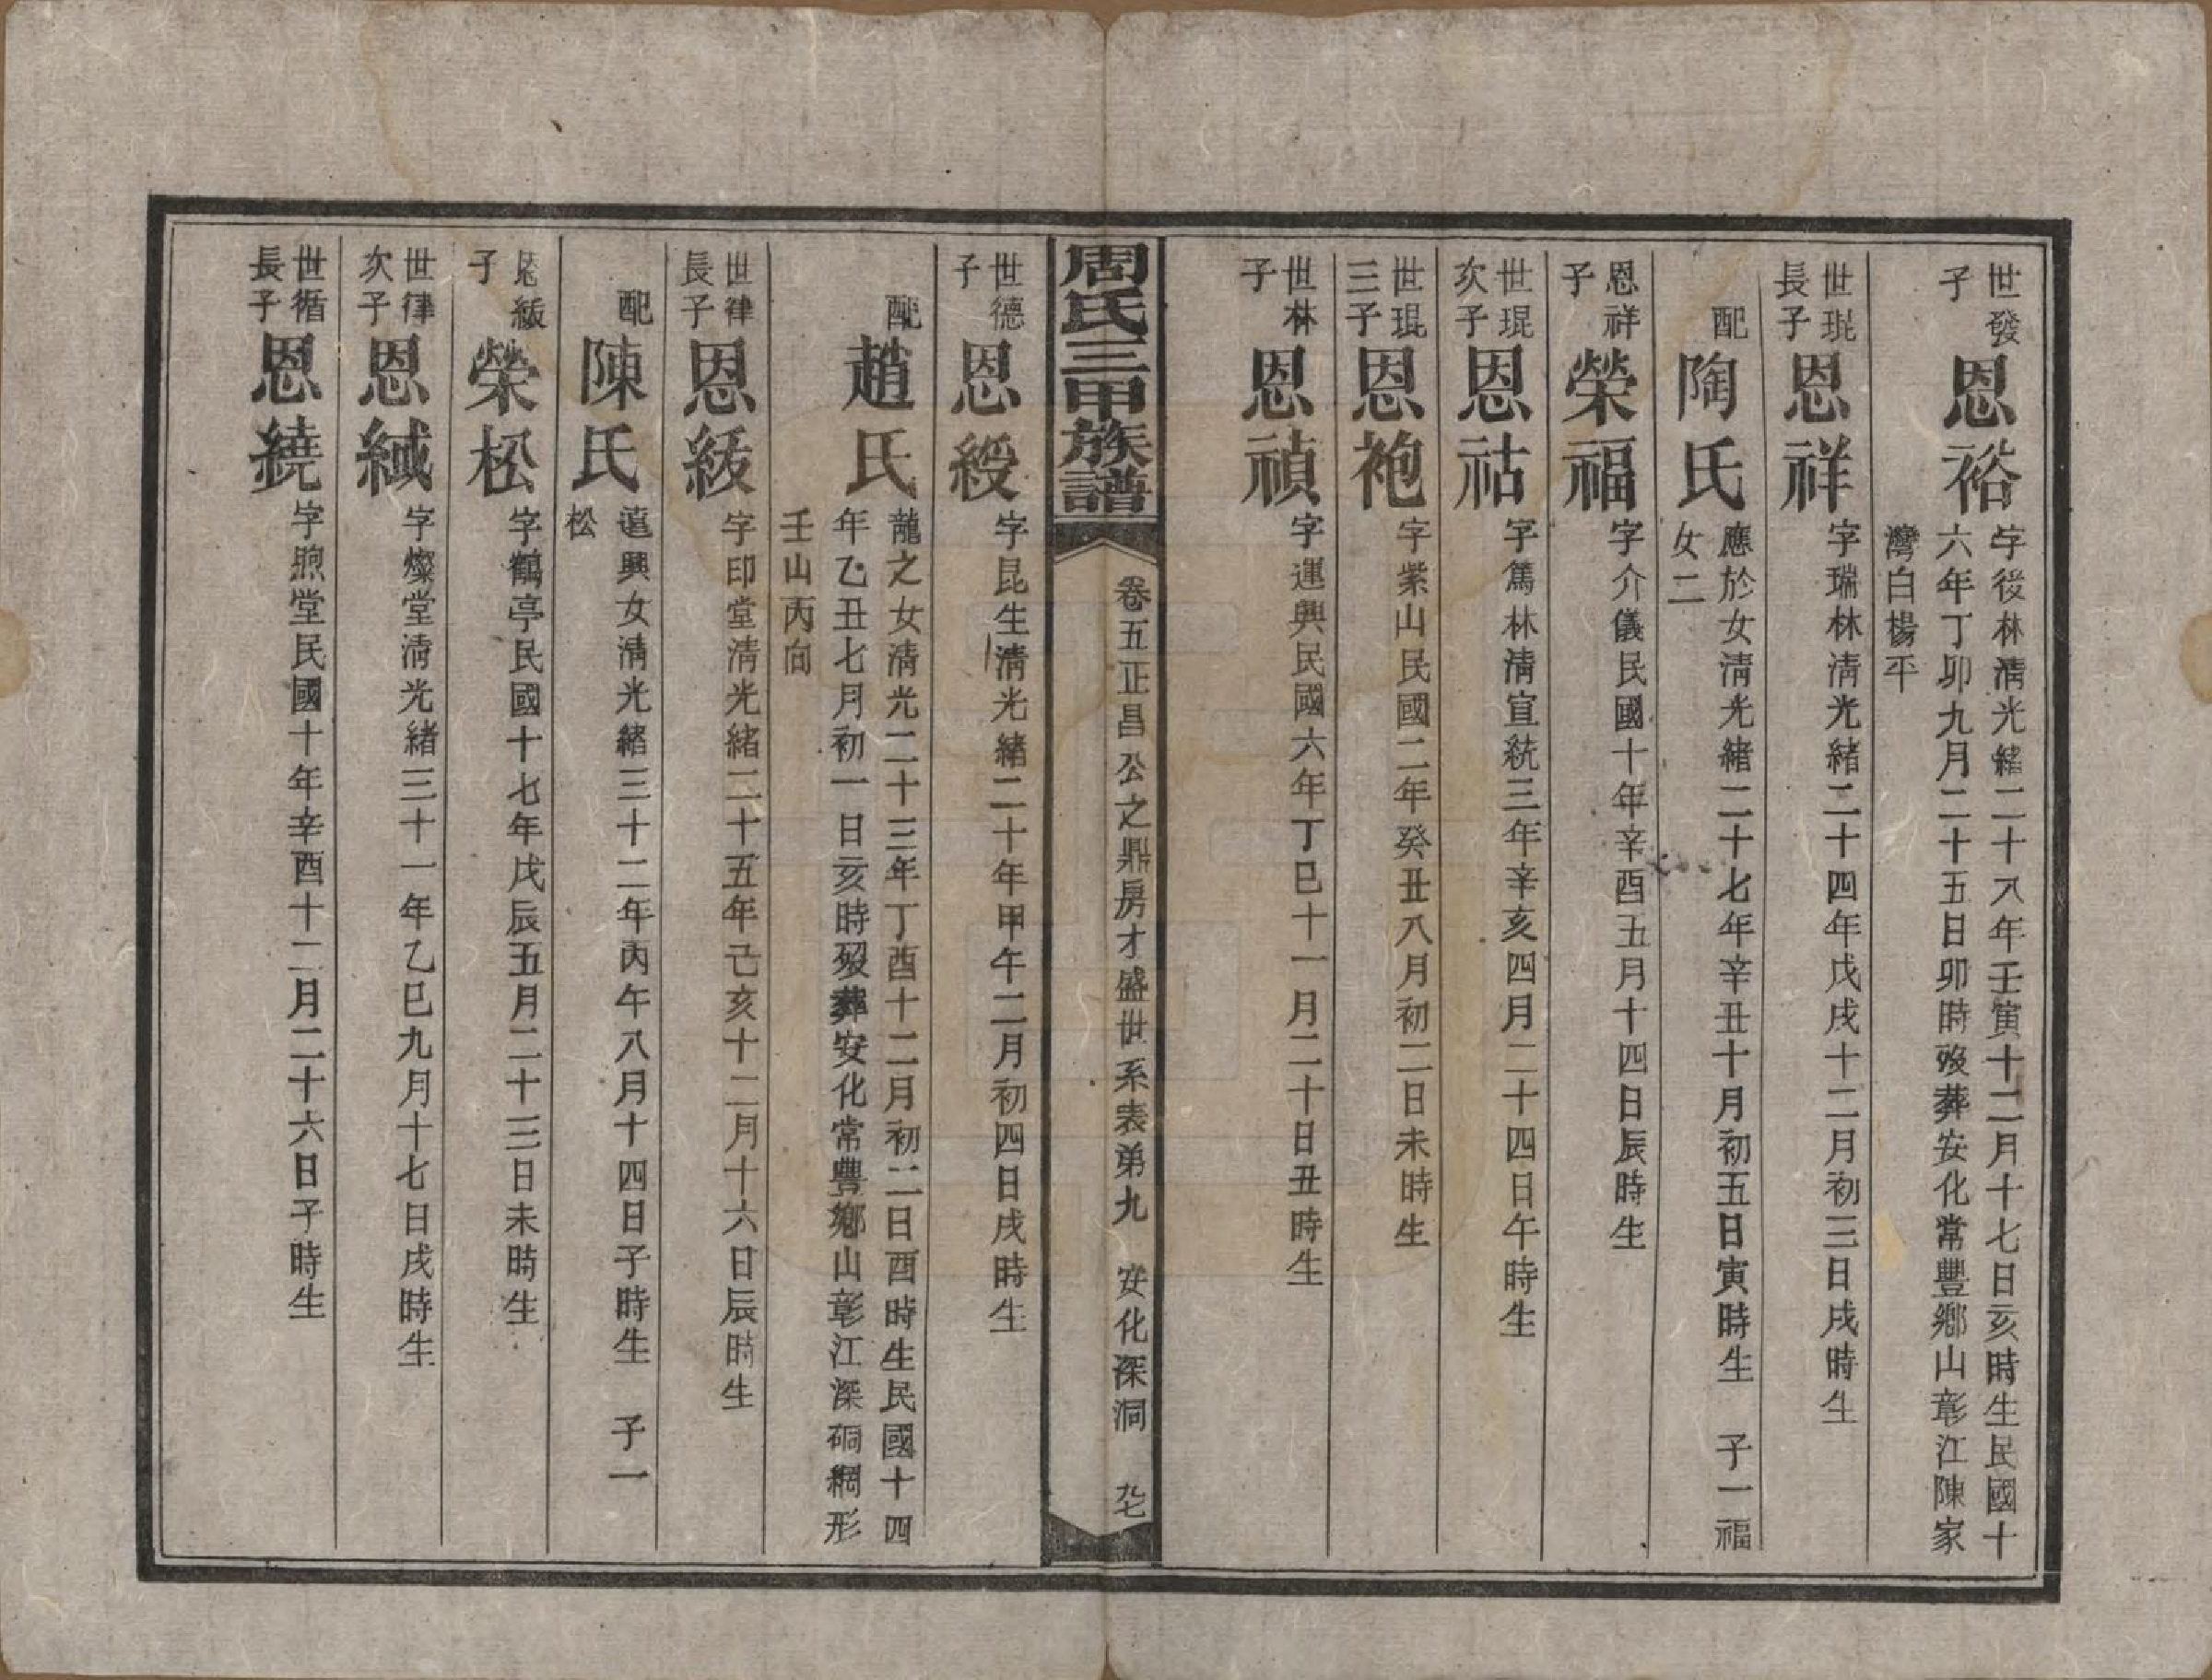 世發子
恩裕
字後林清光緒二十八年壬寅十二月十七日亥時生民國十
六年丁卯九月二十五日卯時歿葬安化常豐鄉山彰江陳家
灣白楊平
世琨長子
恩祥
字瑞林清光緒二十四年戊戌十二月初三日戌時生
配
陶氏
應於女清光緒二十七年辛丑十月初五日寅時生 子一福
女二
恩祥子
榮福
字介儀民國十年辛酉五月十四日辰時生
世琨次子
恩祜
字篤林清宣統三年辛亥四月二十四日午時生
世琨三子
恩袍
字紫山民國二年癸丑八月初二日未時生
世林子
恩禎
字運興民國六年丁巳十一月二十日丑時生
周氏三甲族譜
卷五正昌公之鼎房才盛世系表弟九 安化深洞 九七
世德子
恩綬
字昆生清光緒二十年甲午二月初四日戌時生
配
趙氏
龍之女清光二十三年丁酉十二月初二日酉時生民國十四
年乙丑七月初一日亥時歿葬安化常豐鄉山彰江深硐綱形
壬山丙向
世律長子
恩紱
字印堂清光緒二十五年己亥十二月十六日辰時生
配
陳氏
遠興女清光緒三十二年丙午八月十四日子時生 子一
松
恩紱子
榮松
字鶴亭民國十七年戊辰五月二十三日未時生
世律次子
恩緎
字燦堂清光緒三十一年乙巳九月十七日戌時生
世循長子
恩繞
字煦堂民國十年辛酉十二月二十六日子時生